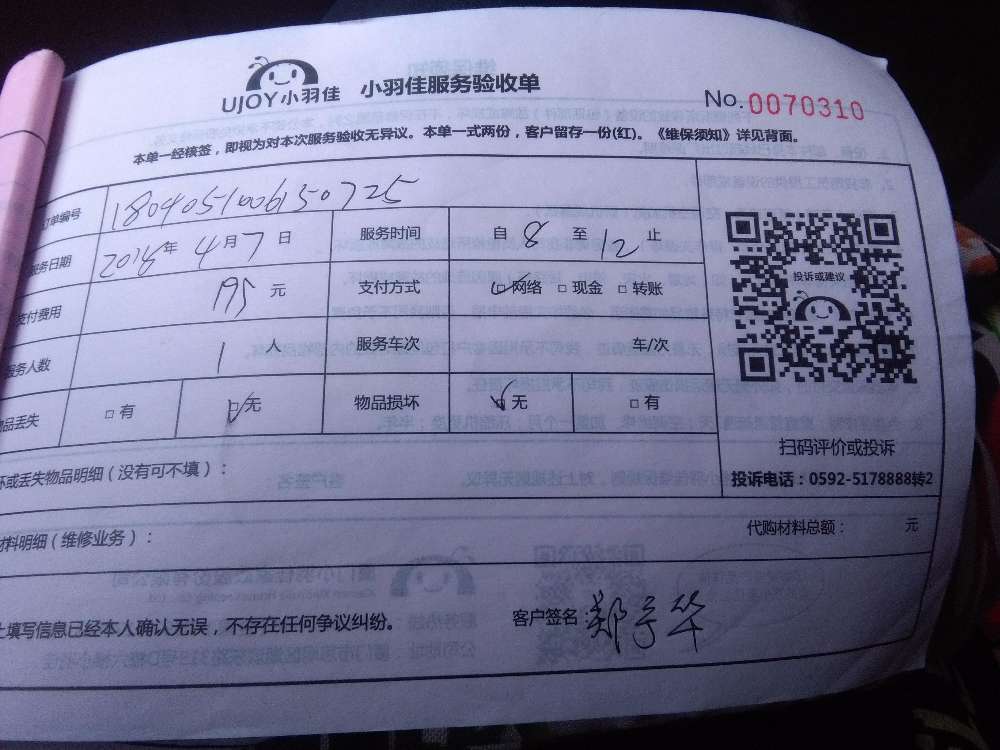 UJOY小羽佳 小羽佳服务验收单
No.0070310
本单一经核签，即视为对本次服务验收无异议。本单一式两份，客户留存一份(红)。《维保须知》详见背面。
订单编号 1804051006150725
服务日期 2018年4月7日 服务时间 自8至12止
支付费用 195元 支付方式 □网络 □现金 □转账
服务人数 1人 服务车次 车/次
物品丢失 □有 □无 物品损坏 □无 □有
投诉或建议
扫码评价或投诉
投诉电话：0592-5178888转2
坏或丢失物品明细（没有可不填）：
材料明细（维修业务）： 代购材料总额： 元
上填写信息已经本人确认无误，不存在任何争议纠纷。 客户签名：郑宇华